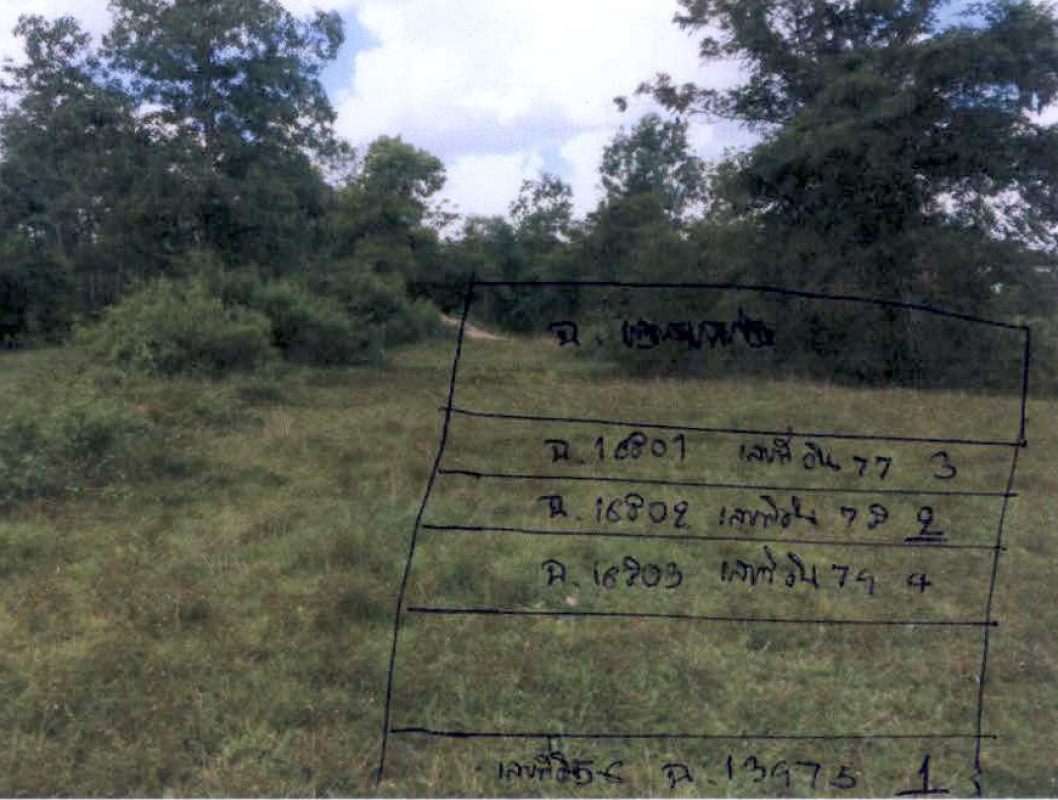 ฉ.
ฉ. 16801 เลขที่ดิน 77 3
ฉ. 16802 เลขที่ดิน 78 2
ฉ. 16803 เลขที่ดิน 79 4
เลขที่ดิน ฉ. 13975 1